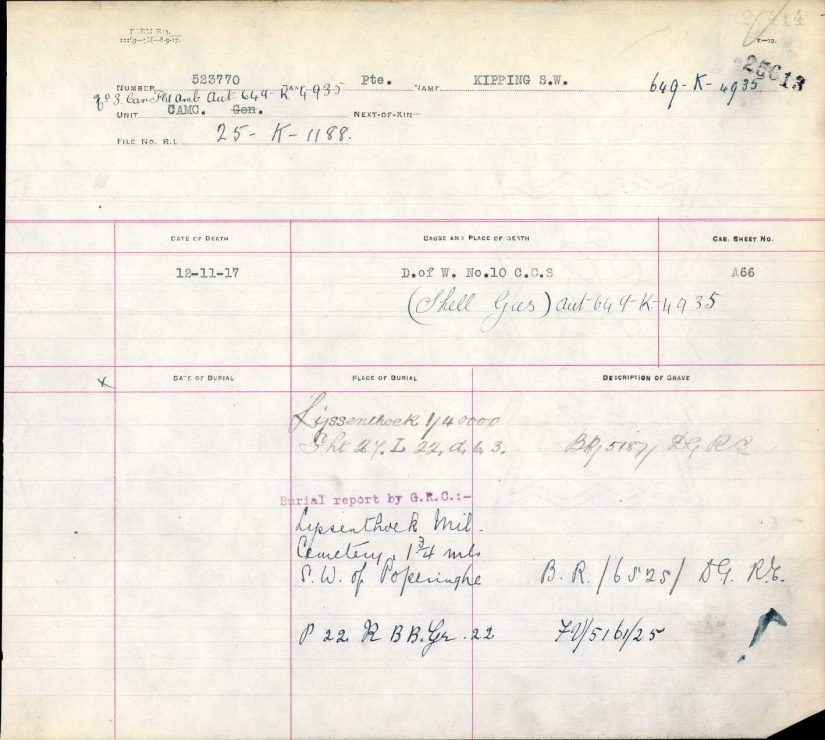 FORM R.
25613
NUMBER 523770 RANK Pte. NAME KIPPING S.W. 649-K-4935
3. Can Fld Amb Aut 649-K-4935
UNIT CAMC. Gen. NEXT-OF-KIN
FILE NO. R.L. 25-K-1188.
DATE OF DEATH CAUSE AND PLACE OF DEATH CAS. SHEET NO.
12-11-17 D.of W. No.10 C.C.S A66
(Shell Gas) Aut 649-K-4935
x DATE OF BURIAL PLACE OF BURIAL DESCRIPTION OF GRAVE
Lijssenthoek 1/40000
Sht 27. L 22. d. 6. 3. BR/5187/ DGR&E
Burial report by G.R.C.:-
Lijssenthoek Mil.
Cemetery. 1 3/4 mls
S.W. of Poperinghe B.R./6525/ DG. R.E.
P 22 R BB. Gr. 22 /5161/25